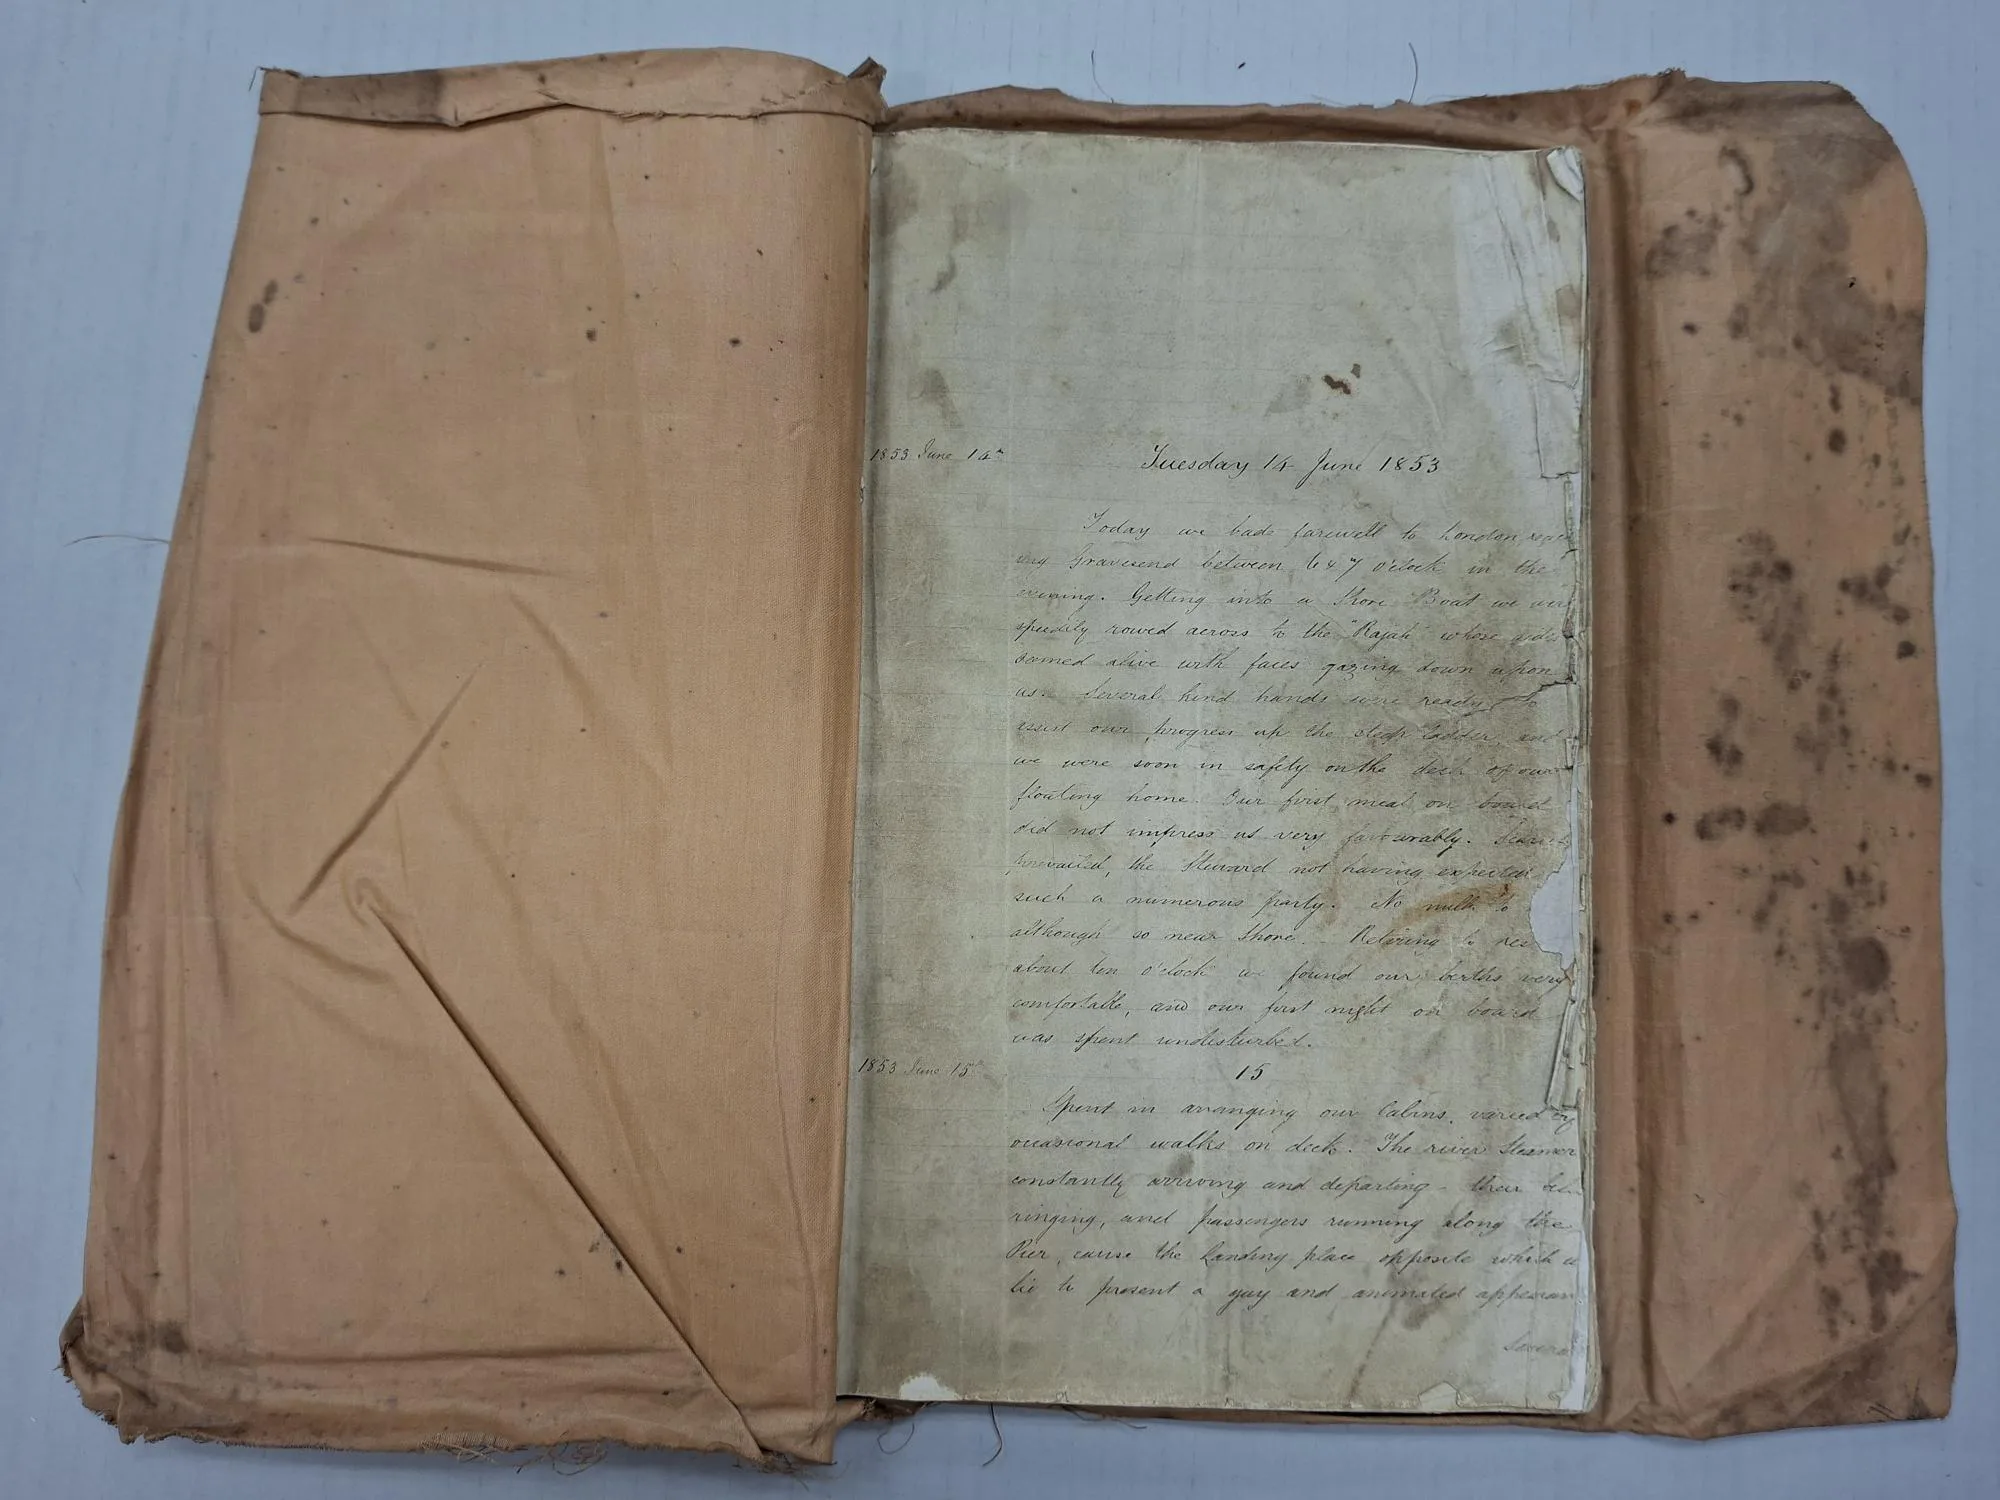 1853 June 14th
Tuesday 14 June 1853
Today we bade farewell to London,
ing Gravesend between 6 & 7 o'clock in the
evening. Getting into a Shore Boat we were
speedily rowed across to the "Rajah" whose sides
seemed alive with faces gazing down upon
us. Several kind hands were ready to
assist our progress up the steep ladder, and
we were soon in safety on the deck of our
floating home. Our first meal on board
did not impress us very favourably.
prevailed, the Steward not having expected
such a numerous party. No milk to
although so near Shore. Retiring to res
about ten o'clock we found our berths very
comfortable, and our first night on board
was spent undisturbed.
1853 June 15th
15
Spent in arranging our Cabins, varied by
occasional walks on deck. The river Steamer
constantly arriving and departing - their bel
ringing, and passengers running along the
Pier, cause the Landing place opposite which w
lie to present a gay and animated appearan